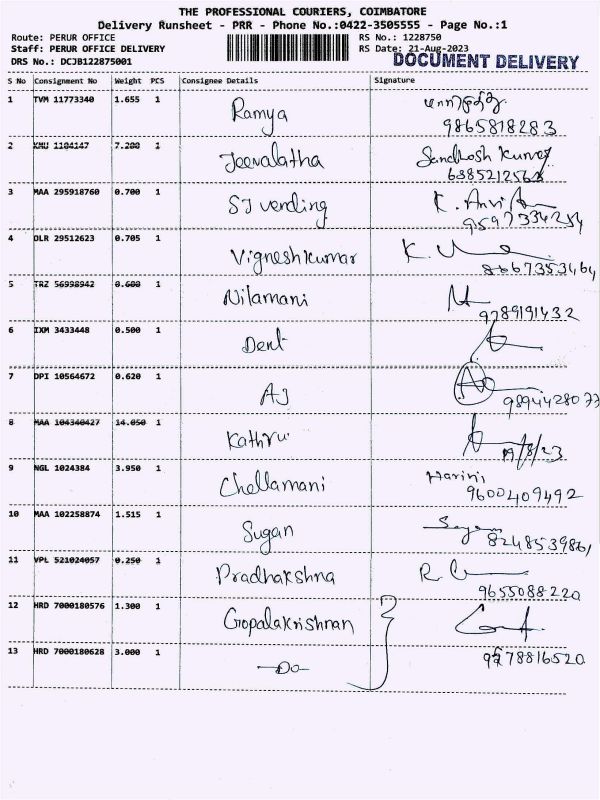 THE PROFESSIONAL COURIERS, COIMBATORE
Delivery Runsheet - PRR - Phone No.:0422-3505555 - Page No.:1
Route: PERUR OFFICE RS No.: 1228750
Staff: PERUR OFFICE DELIVERY RS Date: 21-Aug-2023
DOCUMENT DELIVERY
DRS No.: DCJB122875001
S No Consignment No Weight PCS Consignee Details Signature
1 TVM 11773340 1.655 1 Ramya
9865818283
2 KMU 1104147 7.200 1 Jeevalatha Sandhosh Kumar
6385212568
3 MAA 295918760 0.700 1 SJ vending K. Anvi
9597334254
4 DLR 29512623 0.705 1 Vigneshkumar
8667353464
5 TRZ 56998942 0.600 1 Nilamani
9789191432
6 IXM 3433448 0.500 1 Dent
7 DPI 10564672 0.620 1 AJ
9894428077
8 MAA 104340427 14.050 1 Kathru
/8/23
9 NGL 1024384 3.950 1 Chellamani Harini
9600409492
10 MAA 102258874 1.515 1 Sugan
8248539861
11 VPL 521024057 0.250 1 Pradhakshna
9655088220
12 HRD 7000180576 1.300 1 Gopalakrishnan
13 HRD 7000180628 3.000 1 -Do-
9578816520